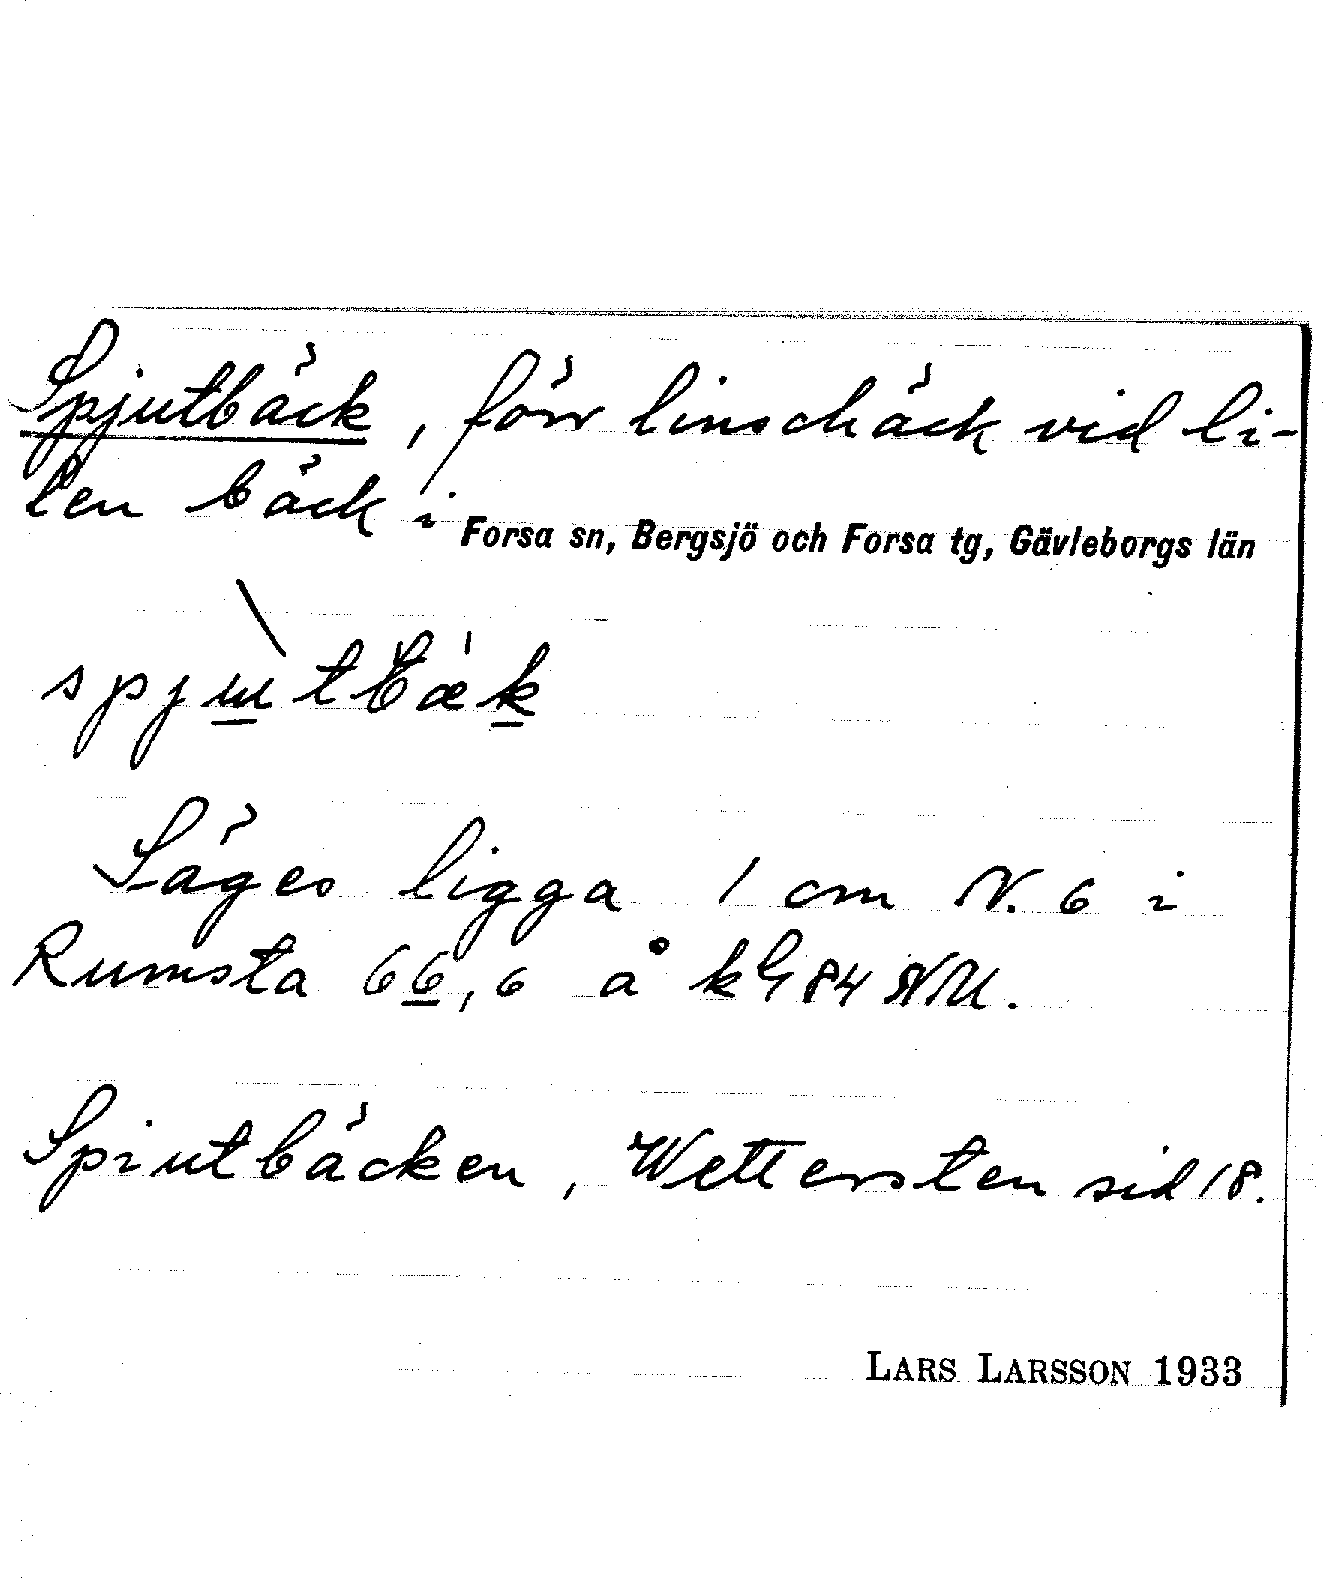 Spjutbäck, förr linschäck vid li-
ten bäck i Forsa sn, Bergsjö och Forsa tg, Gävleborgs län
Säges ligga 1 cm N. 6 i
Rumsta 66,6 å kbl 84 NU.
Spiutbäcken, Wettersten sid 18.
LARS LARSSON 1933